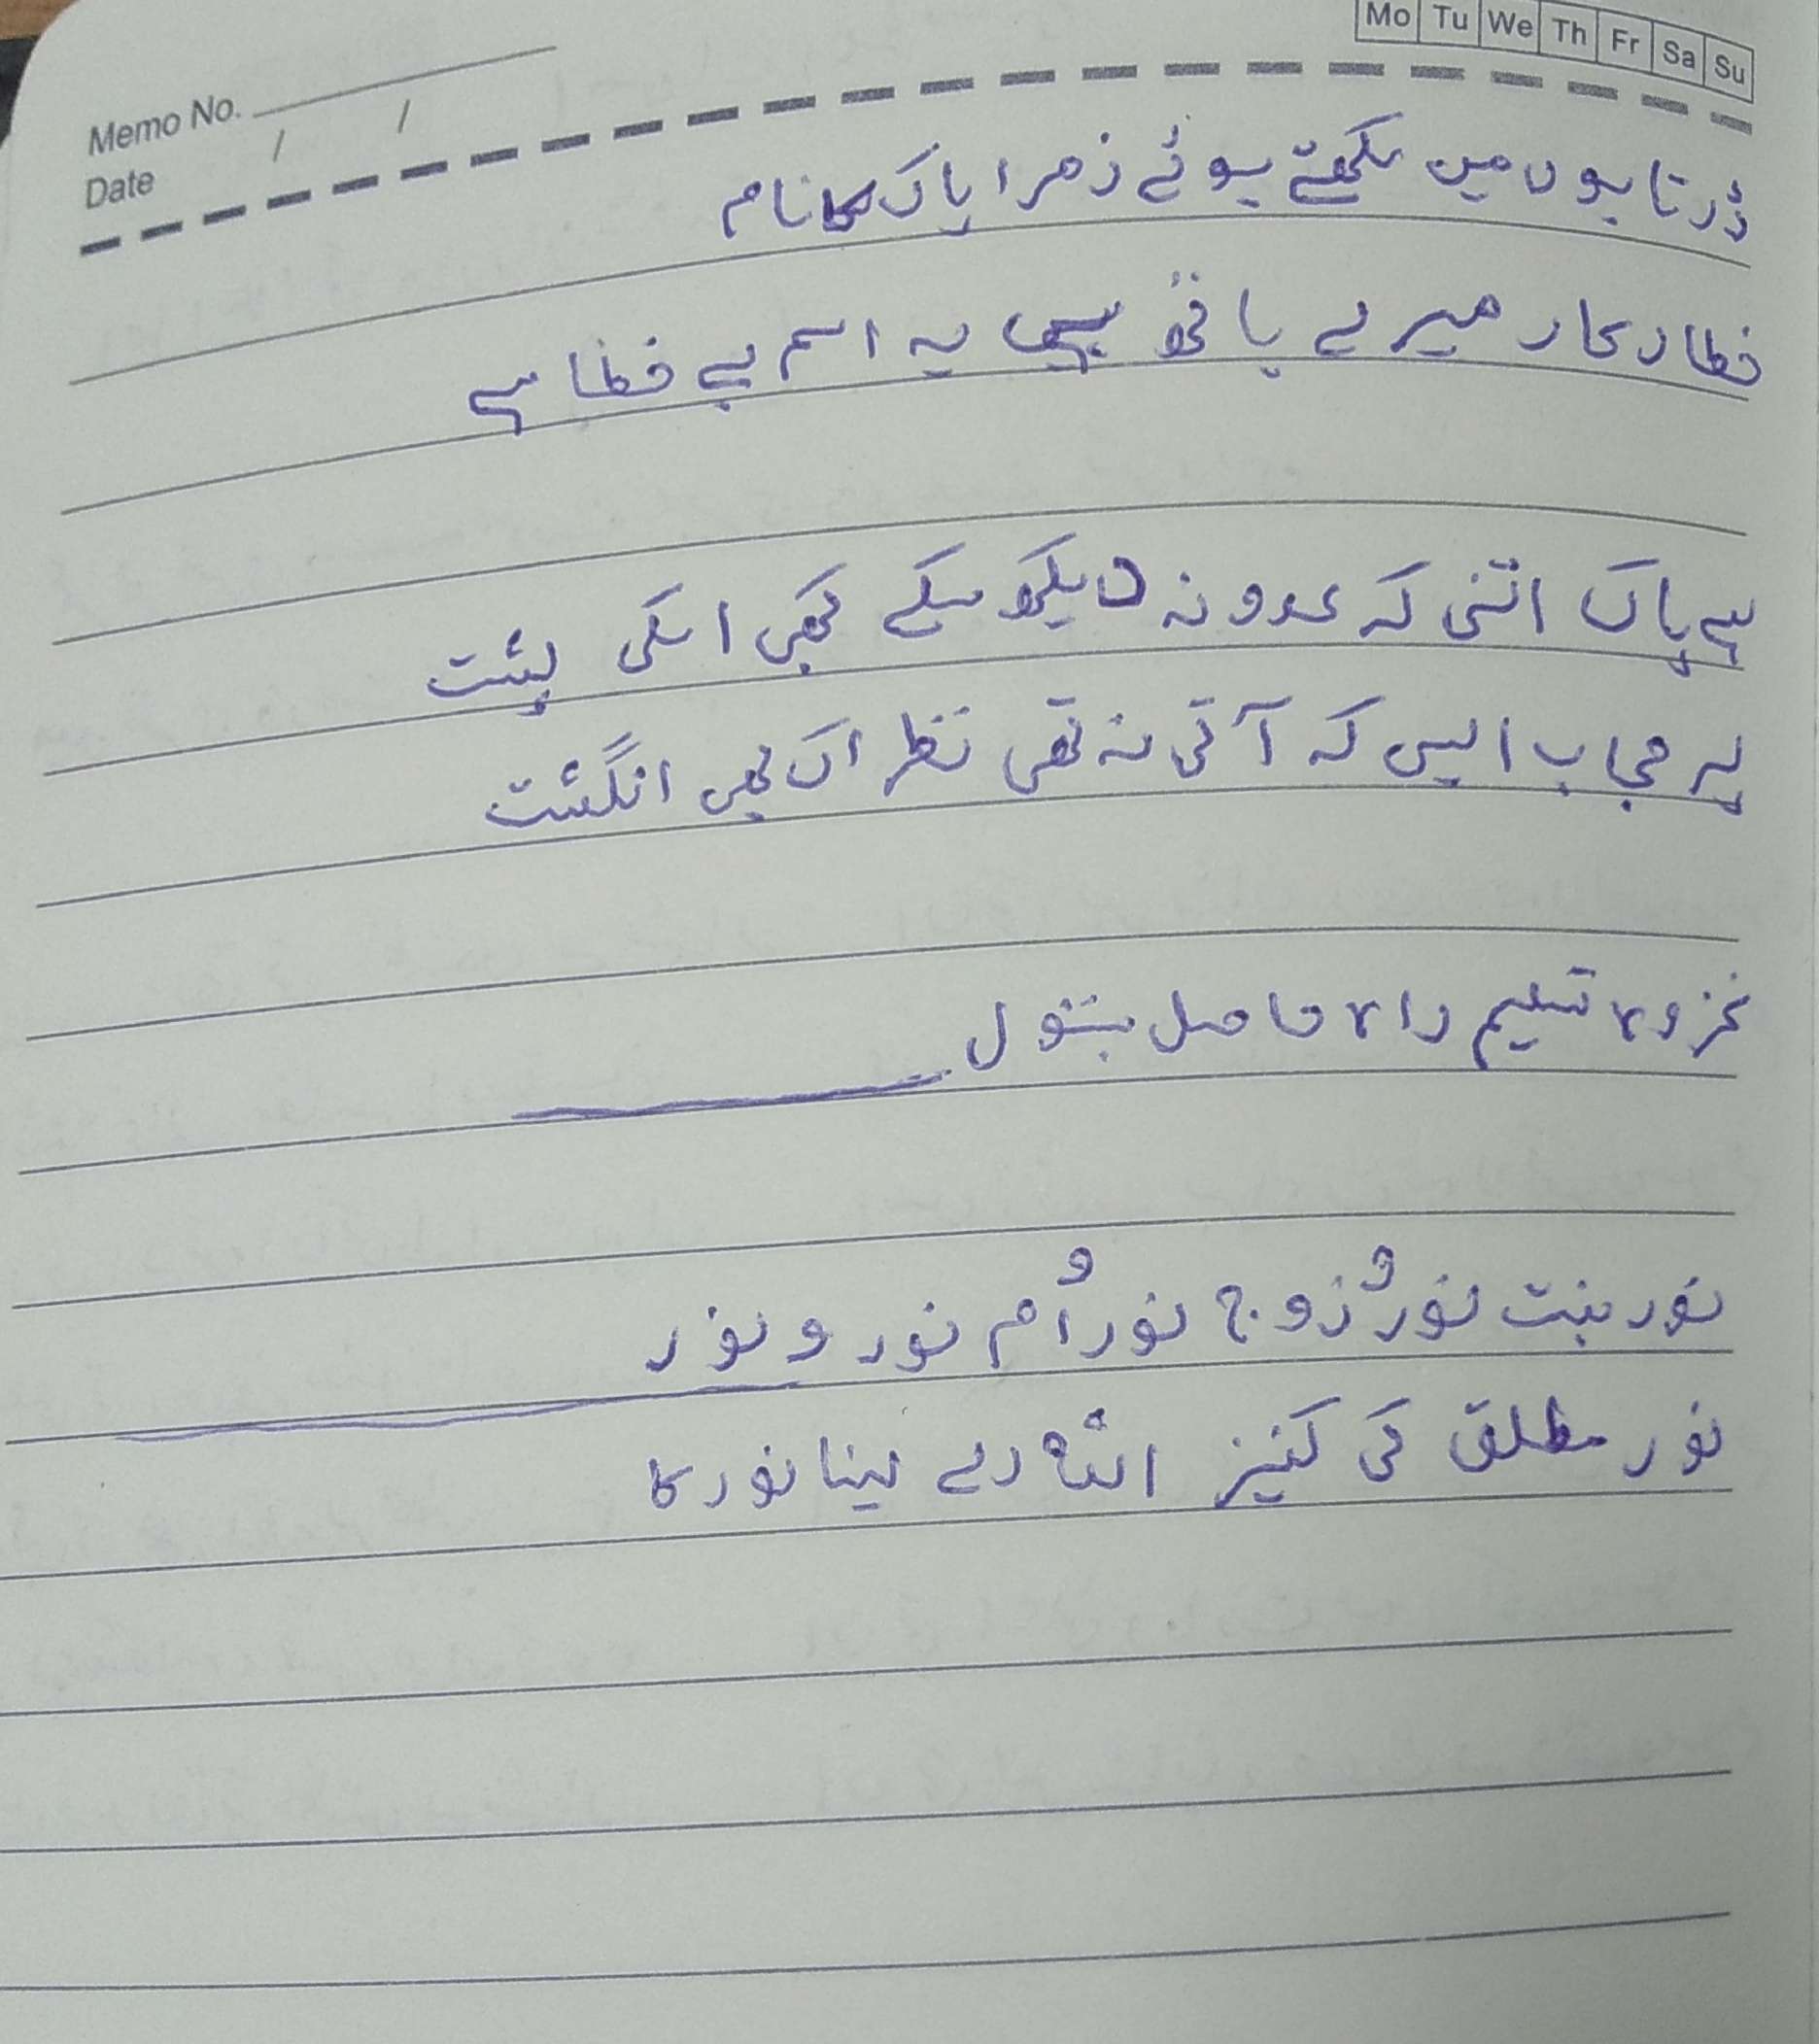 Mo Tu We Th Fr Sa Su
Memo No.
Date / /
ڈرتا ہوں میں لکھتے ہوئے زھرا پاک کا نام
خطا کار میرے ہاتھ ہیں یہ اسم بے خطا ہے
ہے پاک اتنی کہ عدو نہ دیکھ سکے کبھی اسکی پشت
پر حجاب ایسی کہ آتی نہ تھی نظر اک بھی انگشت
تسلیم حاصل بتول
نور بنت نور و زوج نور و اُم نور و نور
نور مطلق کی کنیز اللہ رے لینا نور کا